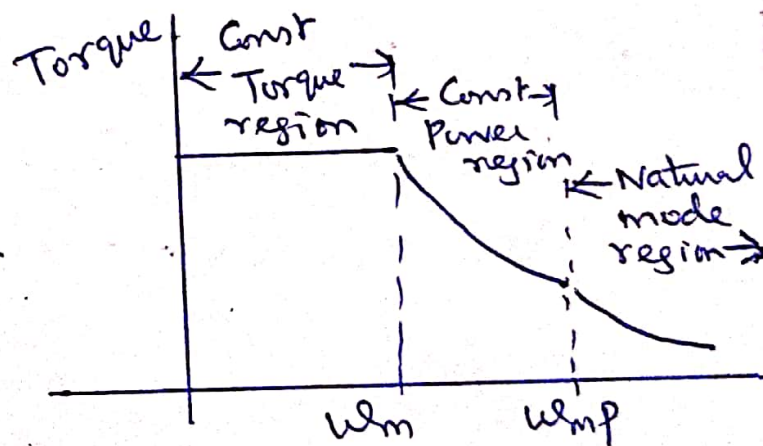 Torque
Const
Torque
region
Const
Power
region
Natural
mode
region
ωm
ωmp